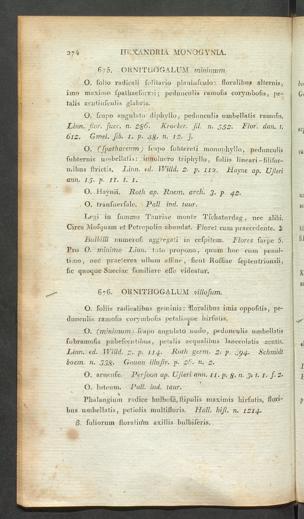 274 HEXANDRIA MONOGYNIA.
675. ORNITHOGALUM minimum.
O. folio radicali solitario planiusculo: floralibus alternis,
imo maximo spathaeformi; pedunculis ramosis corymbosis, pe-
talis acutiusculis glabris.
O. scapo angulato diphyllo, pedunculis umbellatis ramosis.
Linn. flor. suec. n. 286. Krocker. sil. n. 532. Flor. dan. t.
612. Gmel. sib. 1. p. 48. n. 12.
O. (spathaceum) scapo subtereti monophyllo, pedunculis
subternis umbellatis: involucro triphyllo, foliis lineari-filifor-
mibus strictis. Linn. ed. Willd. 2. p. 112. Hayne ap. Usteri
ann. 15. p. 11. t. 1.
O. Haynii. Roth ap. Roem. arch. 3. p. 42.
O. transuersale. Pall. ind. taur.
Legi in summo Tauriae monte Tschaterdag, nec alibi.
Circa Mosquam et Petropolin abundat. Floret cum praecedente. ♃
Bulbilli numerosi aggregati in cespitem. Flores saepe 5.
Pro O. minimo Linn. tuto propono, quum hoc cum penul-
timo, nec praeterea ullum affine, sicut Rossiae septentrionali,
sic quoque Sueciae familiare esse videatur.
676. ORNITHOGALUM villosum.
O. foliis radicalibus geminis: floralibus imis oppositis, pe-
dunculis ramosis corymbosis petalisque hirsutis.
O. (minimum) scapo angulato nudo, pedunculis umbellatis
subramosis pubescentibus, petalis aequalibus lanceolatis acutis.
Linn. ed. Willd. 2. p. 114. Roth germ. 2. p. 394. Schmidt
boem. n. 338. Gouan illustr. p. 26. n. 2.
O. arvense. Persoon ap. Usteri ann. 11. p. 8. n. 3. t. 1. f. 2.
O. luteum. Pall. ind. taur.
Phalangium radice bulbosa, stipulis maximis hirsutis, flori-
bus umbellatis, petiolis multifloris. Hall. hist. n. 1214.
β. foliorum floralium axillis bulbiferis.